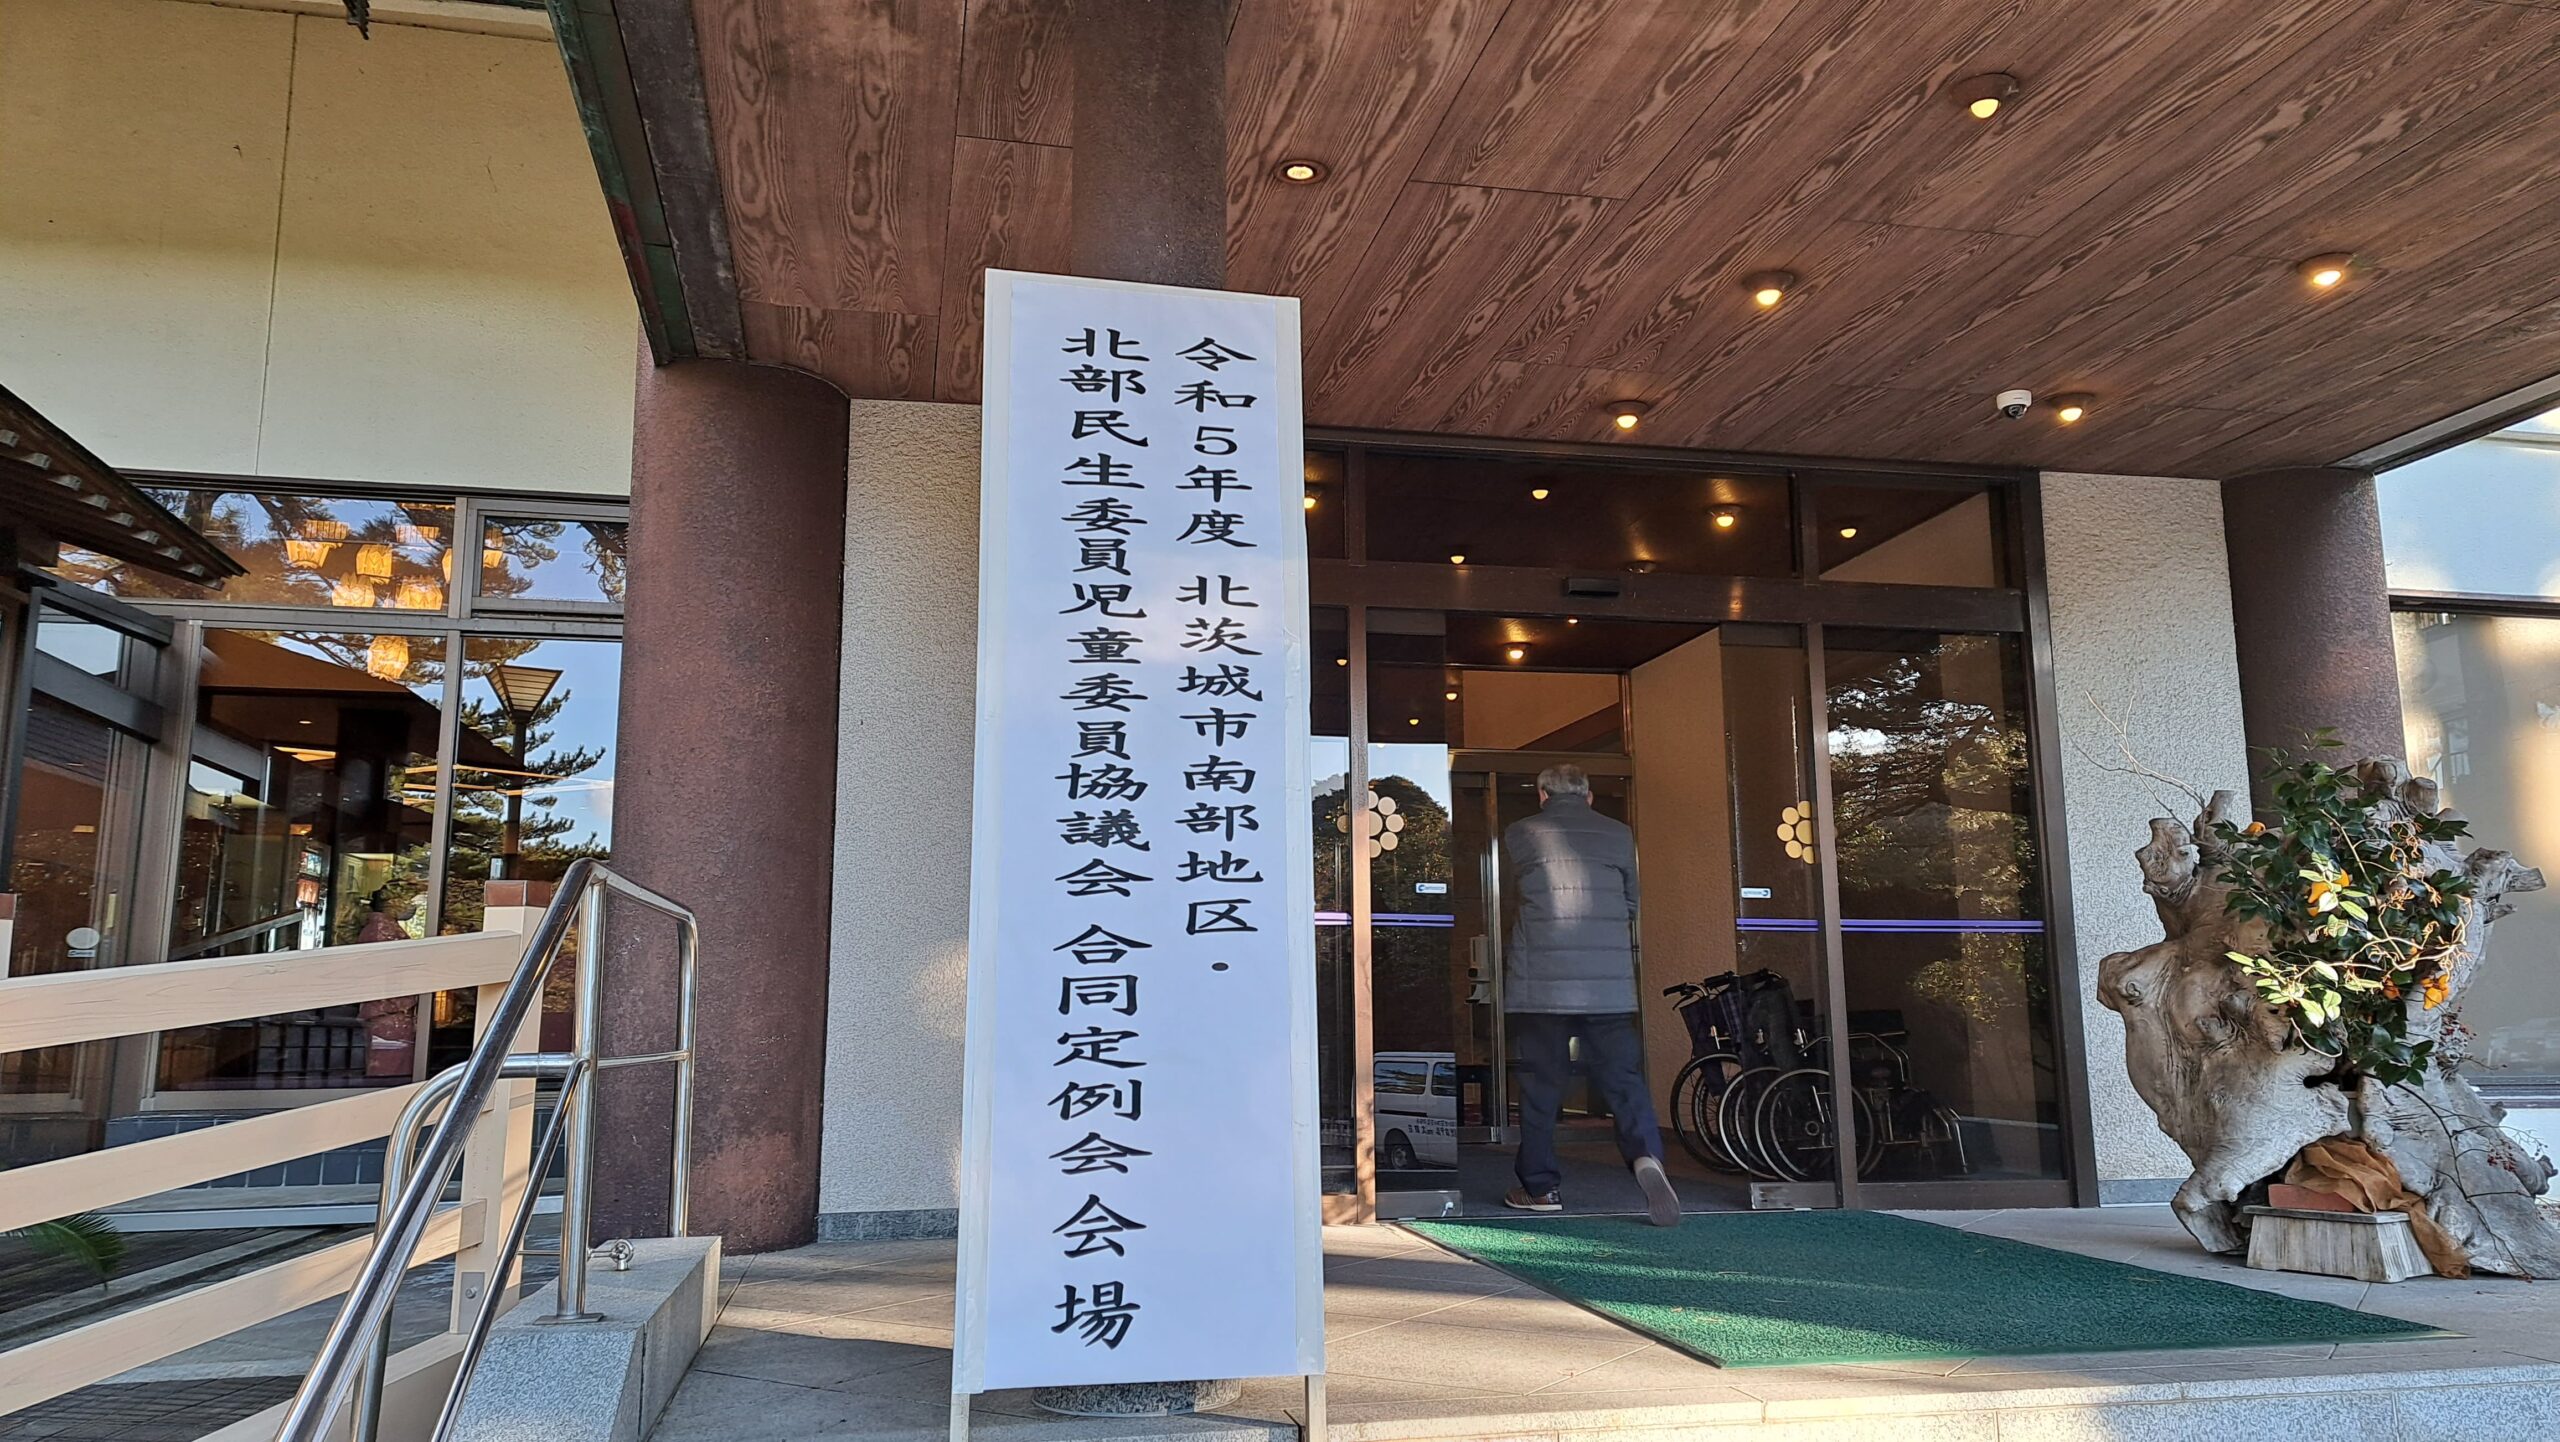 令和５年度 北茨城市南部地区・
北部民生委員児童委員協議会 合同定例会会場